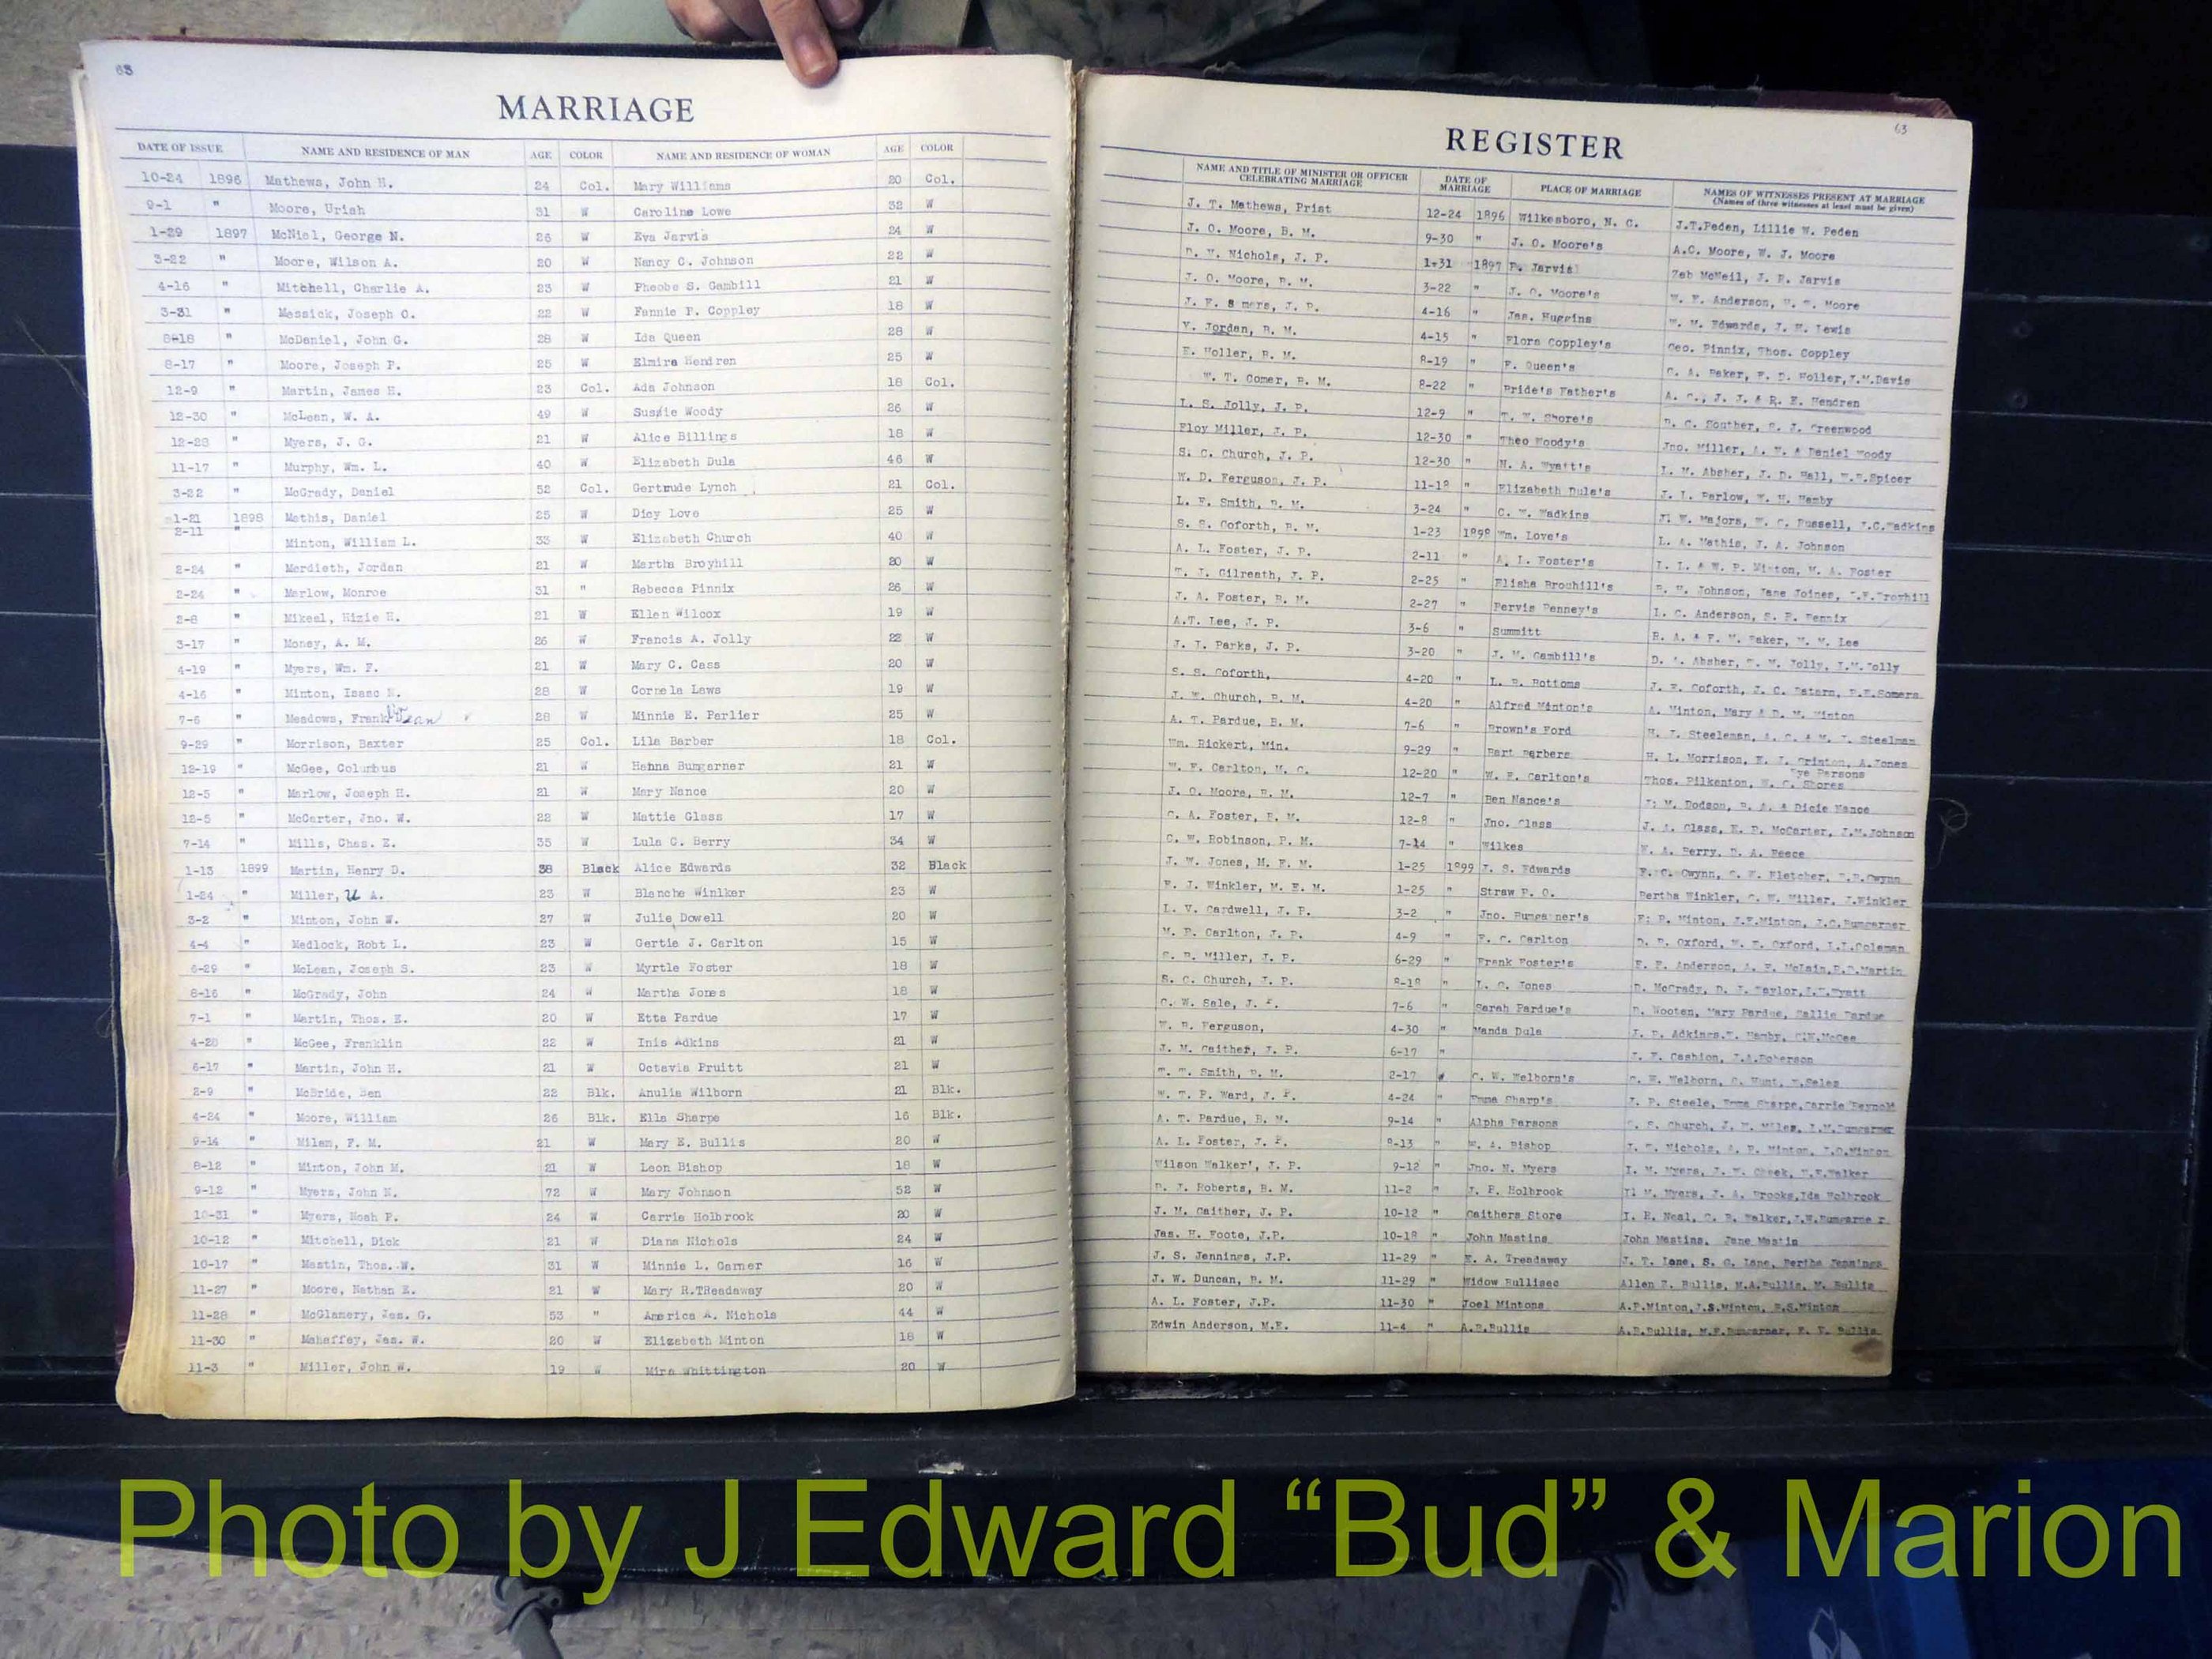 63
MARRIAGE
DATE OF ISSUE NAME AND RESIDENCE OF MAN AGE COLOR NAME AND RESIDENCE OF WOMAN AGE COLOR
10-24 1896 Mathews, John H. 24 Col. Mary Williams 20 Col.
9-1 " Moore, Uriah 31 W Caroline Lowe 32 W
1-29 1897 McNiel, George N. 26 W Eva Jarvis 24 W
3-22 " Moore, Wilson A. 20 W Nancy C. Johnson 22 W
4-16 " Mitchell, Charlie A. 23 W Pheobe S. Gambill 21 W
3-31 " Messick, Joseph O. 22 W Fannie P. Coppley 18 W
8-18 " McDaniel, John G. 28 W Ida Queen 28 W
8-17 " Moore, Joseph P. 25 W Elmira Hendren 25 W
12-9 " Martin, James H. 23 Col. Ada Johnson 18 Col.
12-30 " McLean, W. A. 49 W Susie Woody 26 W
12-28 " Myers, J. G. 21 W Alice Billings 18 W
11-17 " Murphy, Wm. L. 40 W Elizabeth Dula 46 W
3-22 " McGrady, Daniel 52 Col. Gertrude Lynch 21 Col.
1-21 1898 Mathis, Daniel 25 W Dicy Love 25 W
2-11 " Minton, William L. 33 W Elizabeth Church 40 W
2-24 " Merdieth, Jordan 21 W Martha Broyhill 20 W
2-24 " Marlow, Monroe 31 " Rebecca Pinnix 26 W
2-8 " Mikeal, Hizie H. 21 W Ellen Wilcox 19 W
3-17 " Money, A. M. 26 W Francis A. Jolly 22 W
4-19 " Myers, Wm. F. 21 W Mary C. Cass 20 W
4-16 " Minton, Isaac N. 28 W Cornela Laws 19 W
7-6 " Meadows, Frank 28 W Minnie E. Parlier 25 W
9-29 " Morrison, Baxter 25 Col. Lila Barber 18 Col.
12-19 " McGee, Columbus 21 W Hanna Bumgarner 21 W
12-5 " Marlow, Joseph H. 21 W Mary Nance 20 W
12-5 " McCarter, Jno. W. 22 W Mattie Glass 17 W
7-14 " Mills, Chas. E. 35 W Lula C. Berry 34 W
1-13 1899 Martin, Henry D. 38 Black Alice Edwards 32 Black
1-24 " Miller, U A. 23 W Blanche Winlker 23 W
3-2 " Minton, John W. 27 W Julie Dowell 20 W
4-4 " Medlock, Robt L. 23 W Gertie J. Carlton 15 W
6-29 " McLean, Joseph S. 23 W Myrtle Foster 18 W
8-16 " McGrady, John 24 W Martha Jones 18 W
7-1 " Martin, Thos. E. 20 W Etta Pardue 17 W
4-28 " McGee, Franklin 22 W Inis Adkins 21 W
6-17 " Martin, John H. 21 W Octavia Pruitt 21 W
2-9 " McBride, Ben 22 Blk. Anulia Wilborn 21 Blk.
4-24 " Moore, William 26 Blk. Ella Sharpe 16 Blk.
9-14 " Milam, F. M. 21 W Mary E. Bullis 20 W
8-12 " Minton, John M. 21 W Leon Bishop 18 W
9-12 " Myers, John N. 72 W Mary Johnson 52 W
10-31 " Myers, Noah P. 24 W Carrie Holbrook 20 W
10-12 " Mitchell, Dick 21 W Diana Nichols 24 W
10-17 " Mastin, Thos. W. 31 W Minnie L. Garner 16 W
11-27 " Moore, Nathan E. 21 W Mary R.THeadaway 20 W
11-28 " McGlamery, Jas. G. 53 " America A. Nichols 44 W
11-30 " Mahaffey, Jas. W. 20 W Elizabeth Minton 18 W
11-3 " Miller, John W. 19 W Mira Whittington 20 W
63
REGISTER
NAME AND TITLE OF MINISTER OR OFFICER CELEBRATING MARRIAGE DATE OF MARRIAGE PLACE OF MARRIAGE NAMES OF WITNESSES PRESENT AT MARRIAGE (Names of three witnesses at least must be given)
J. T. Mathews, Print 12-24 1896 Wilkesboro, N. C. J.T.Peden, Lillie W. Peden
J. O. Moore, B. M. 9-30 " J. O. Moore's A.C. Moore, W. J. Moore
Nichols, J. P. 1-31 1897 P. Jarvis Zeb McNeil, J. R. Jarvis
J. O. Moore, B. M. 3-22 " J. O. Moore's W. F. Anderson, Moore
J. F. Somers, J. P. 4-16 " Jas. Huggins W. M. Edwards, J. H. Lewis
V. Jordan, B. M. 4-15 " Flora Coppley's Geo. Pinnix, Thos. Coppley
E. Holler, B. M. 8-19 " F. Queen's C. A. Baker, F. D. Holler,J.W.Davis
W. T. Comer, B. M. 8-22 " Bride's Father's A. C., J. J. & R. E. Hendren
L. S. Jolly, J. P. 12-9 " T. W. Shore's D. C. Souther, S. J. Greenwood
Floy Miller, J. P. 12-30 " Theo Woody's Jno. Miller, A. W. & Daniel Woody
S. C. Church, J. P. 12-30 " N. A. Wyatt's L. M. Absher, J. D. Hall, Spicer
W. D. Ferguson, J. P. 11-18 " Elizabeth Dula's J. L. Parlow, Hamby
L. F. Smith, B. M. 3-24 " C. W. Wadkins J. W. Majors, W. C. Russell, J.C.Wadkins
S. S. Goforth, B. M. 1-23 1898 Wm. Love's L. A. Mathis, J. A. Johnson
A. L. Foster, J. P. 2-11 " A. L. Foster's L. L. & W. P. Minton, W. A. Foster
T. J. Gilreath, J. P. 2-25 " Elisha Brouhill's Johnson, Jane Joines, Broyhill
J. A. Foster, B. M. 2-27 " Pervis Penney's L. C. Anderson, S. P. Pennix
A.T. Lee, J. P. 3-6 " Summitt R. A. & F. M. Baker, W. M. Lee
J. I. Parks, J. P. 3-20 " J. M. Gambill's Absher, Jolly, J.M.Jolly
S. S. Goforth, 4-20 " L. B. Bottoms J. E. Goforth, J. C. Somers
J. W. Church, B. M. 4-20 " Alfred Minton's A. Minton, Mary & D. M. Minton
A. T. Pardue, B. M. 7-6 " Brown's Ford Steeleman, Steelman
Wm. Rickert, Min. 9-29 " Bart Barbers H. L. Morrison, A.Jones
W. F. Carlton, M. G. 12-20 " W. F. Carlton's Thos. Pilkenton, W. C. Shores Parsons
J. O. Moore, B. M. 12-7 " Ben Nance's J. M. Dodson, R. A. & Dicie Nance
C. A. Foster, B. M. 12-8 " Jno. Glass J. A. Glass, E. P. McCarter, J.M.Johnson
C. W. Robinson, P. M. 7-14 " Wilkes W. A. Berry, D. A. Reece
J. W. Jones, M. E. M. 1-25 1899 J. S. Edwards Gwynn, Fletcher, Gwynn
E. J. Winkler, M. E. M. 1-25 " Straw P. O. Bertha Winkler, C. W. Miller, J.Winkler
L. V. Cardwell, J. P. 3-2 " Jno. Bumgarner's Minton, J.F.Minton, J.G.Bumgarner
M. P. Carlton, J. P. 4-9 " F. C. Carlton D. P. Oxford, Oxford, Coleman
Miller, J. P. 6-29 " Frank Foster's Anderson, McLain, Martin
S. C. Church, J. P. 8-18 " L. C. Jones D. McGrady, D. J. Taylor, Wyatt
C. W. Sale, J. P. 7-6 " Sarah Pardue's Wooten, Mary Pardue, Sallie Pardue
Ferguson, 4-30 " Wanda Dula J. P. Adkins, Hamby, McGee
J. M. Gaither, J. P. 6-17 " J. F. Cashion, J.A.Roberson
Smith, B. M. 2-17 C. W. Welborn's C. W. Welborn, Hunt, Sales
W. T. P. Ward, J. P. 4-24 " Emma Sharp's J. P. Steele, Emma Sharpe,Carrie Reynold
A. T. Pardue, B. M. 9-14 " Alpha Parsons Church, Miles, Bumgarner
A. L. Foster, J. P. 8-13 " W. A. Bishop Nichols, Minton, Minton
Wilson Walker', J. P. 9-12 " Jno. N. Myers Myers, Cheek, Walker
D. J. Roberts, B. M. 11-2 " J. P. Holbrook Myers, J. A. Brooks,Ida Holbrook
J. M. Gaither, J. P. 10-12 " Gaithers Store I. H. Neal, Walker, Bumgarner
Jas. H. Foote, J.P. 10-18 " John Mastins John Mastins. Jane Mastin
J. S. Jennings, J.P. 11-29 " E. A. Treadaway J. T. Lane, S. C. Lane, Bertha Jennings
J. W. Duncan, B. M. 11-29 " Widow Bullisec Allen F. Bullis, M.A.Bullis, M. Bullis
A. L. Foster, J.P. 11-30 " Joel Mintons A.P.Minton,J.S.Minton, B.S.Minton
Edwin Anderson, M.E. 11-4 " A.B.Bullis A.B.Bullis, Bumgarner, Bullis
Photo by J Edward “Bud” & Marion